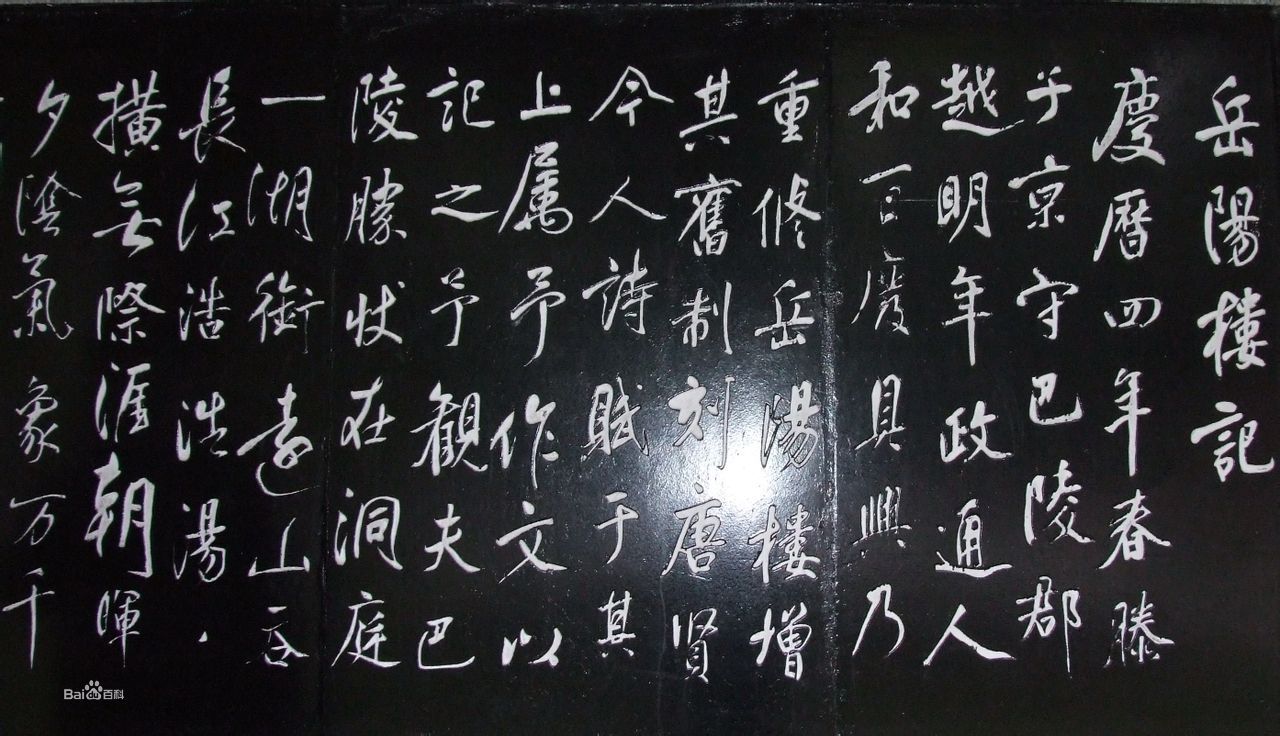 岳陽樓記
慶曆四年春滕
子京守巴陵郡
越明年政通人
和百廢具興乃
重修岳陽樓增
其舊制刻唐賢
今人詩賦于其
上属予作文以
記之予觀夫巴
陵勝狀在洞庭
一湖銜遠山吞
長江浩浩湯、
橫無際涯朝暉
夕陰氣象万千
Baidu百科